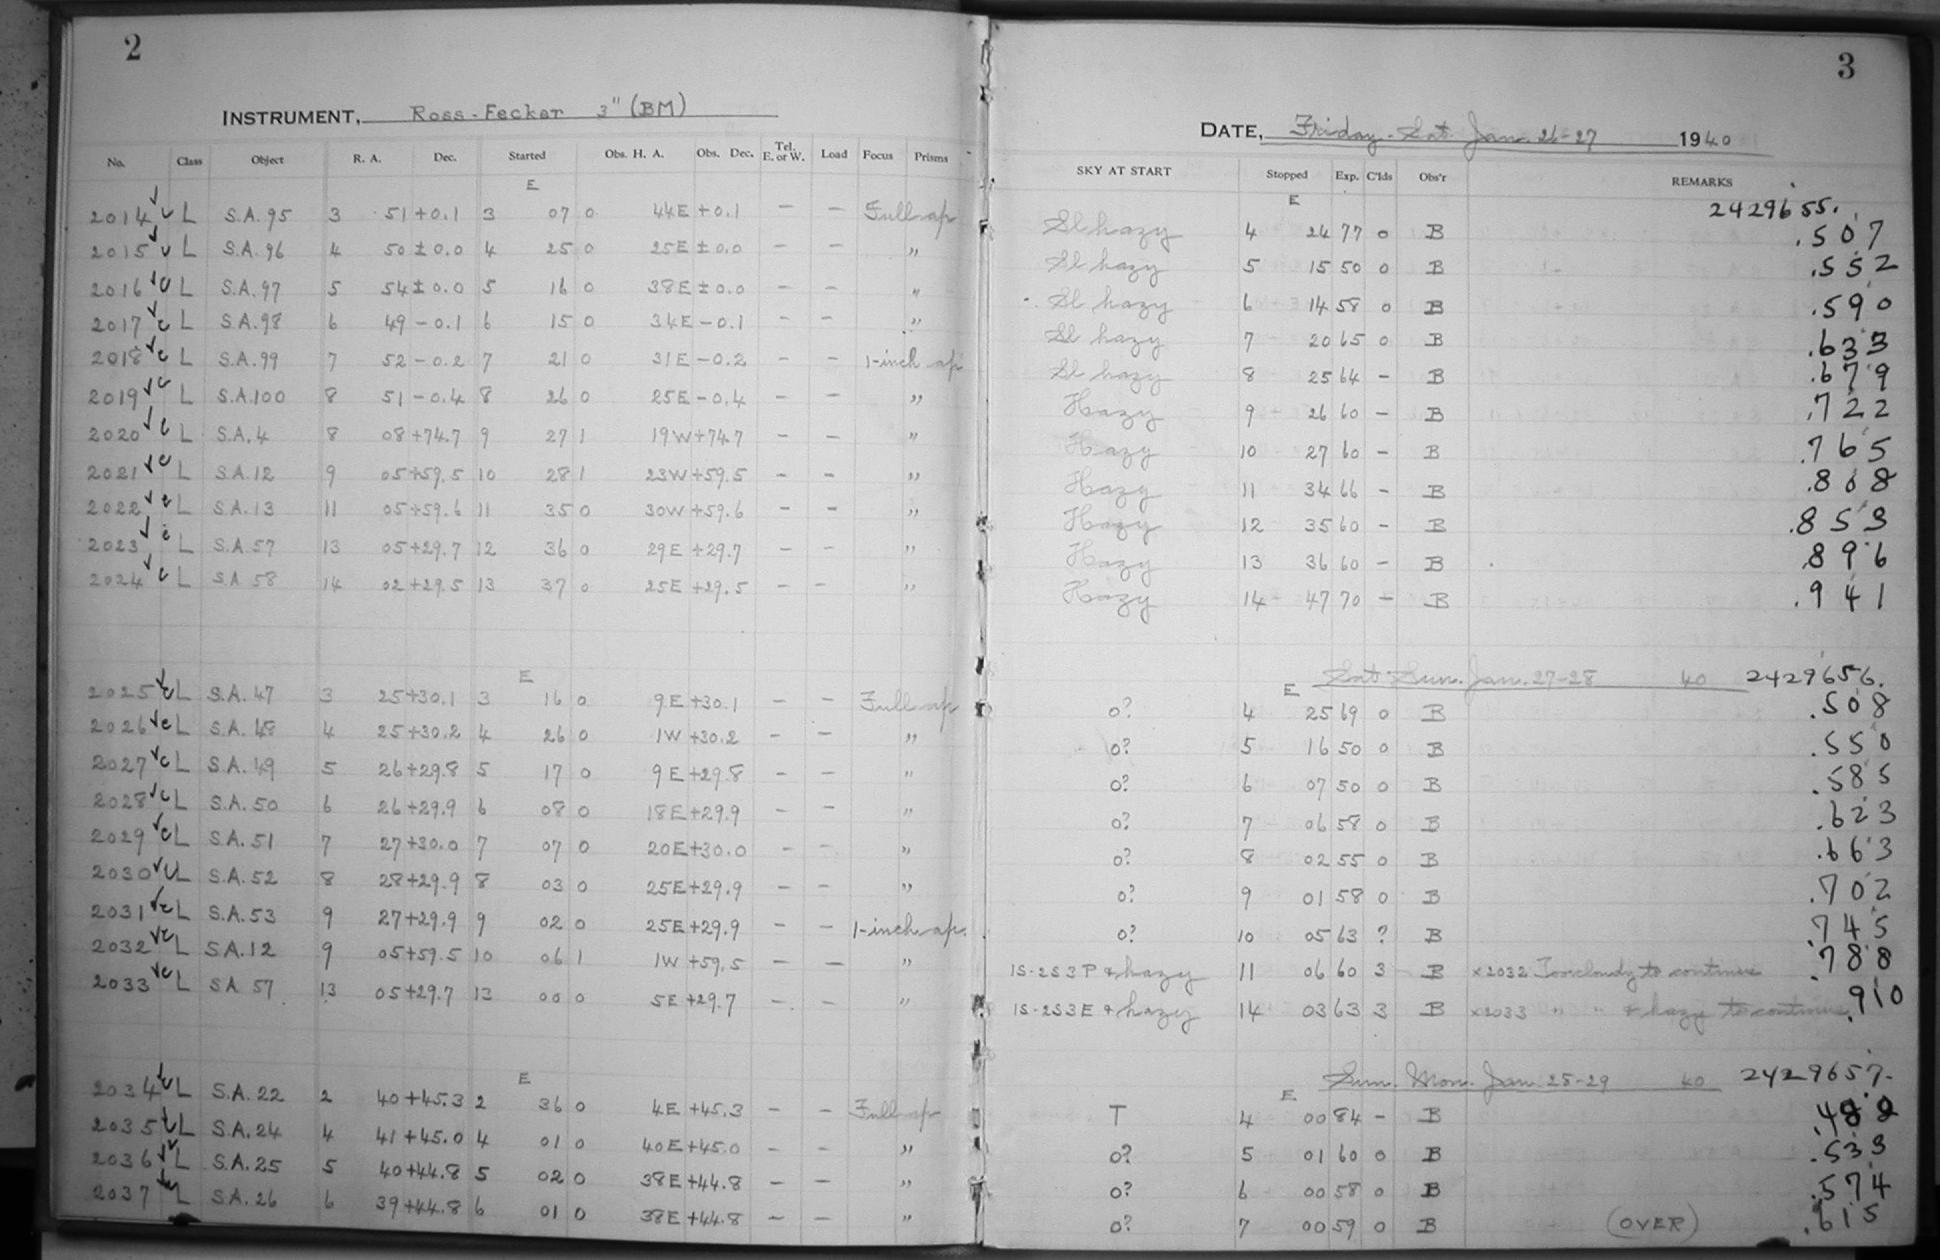 2
INSTRUMENT, Ross-Fecker 3" (BM)
No. Class Object R. A. Dec. Started Obs. H. A. Obs. Dec. Tel. E. or W. Load Focus Prisms
E
2014 L S.A. 95 3 51 +0.1 3 07 0 44E +0.1 – – Full ap
2015 L S.A. 96 4 50 ±0.0 4 25 0 25E ±0.0 – – "
2016 L S.A. 97 5 54 ±0.0 5 16 0 38E ±0.0 – – "
2017 L S.A. 98 6 49 -0.1 6 15 0 34E -0.1 – – "
2018 L S.A. 99 7 52 -0.2 7 21 0 31E -0.2 – – 1-inch ap
2019 L S.A. 100 8 51 -0.4 8 26 0 25E -0.4 – – "
2020 L S.A. 4 8 08 +74.7 9 27 1 19W +74.7 – – "
2021 L S.A. 12 9 05 +59.5 10 28 1 23W +59.5 – – "
2022 L S.A. 13 11 05 +59.6 11 35 0 30W +59.6 – – "
2023 L S.A. 57 13 05 +29.7 12 36 0 29E +29.7 – – "
2024 L S.A. 58 14 02 +29.5 13 37 0 25E +29.5 – – "
E
2025 L S.A. 47 3 25 +30.1 3 16 0 9E +30.1 – – Full ap
2026 L S.A. 48 4 25 +30.2 4 26 0 1W +30.2 – – "
2027 L S.A. 49 5 26 +29.8 5 17 0 9E +29.8 – – "
2028 L S.A. 50 6 26 +29.9 6 08 0 18E +29.9 – – "
2029 L S.A. 51 7 27 +30.0 7 07 0 20E +30.0 – – "
2030 L S.A. 52 8 28 +29.9 8 03 0 25E +29.9 – – "
2031 L S.A. 53 9 27 +29.9 9 02 0 25E +29.9 – – 1-inch ap.
2032 L S.A. 12 9 05 +59.5 10 06 1 1W +59.5 – – "
2033 L S.A. 57 13 05 +29.7 13 00 0 5E +29.7 – – "
E
2034 L S.A. 22 2 40 +45.3 2 36 0 4E +45.3 – – Full ap
2035 L S.A. 24 4 41 +45.0 4 01 0 40E +45.0 – – "
2036 L S.A. 25 5 40 +44.8 5 02 0 38E +44.8 – – "
2037 L S.A. 26 6 39 +44.8 6 01 0 38E +44.8 – – "
3
DATE, Friday-Sat Jan. 26-27 1940
SKY AT START Stopped Exp. C'lds Obs'r REMARKS
E 2429655.
Sl hazy 4 24 77 0 B .507
Sl hazy 5 15 50 0 B .552
Sl hazy 6 14 58 0 B .590
Sl hazy 7 20 65 0 B .633
Sl hazy 8 25 64 – B .679
Hazy 9 26 60 – B .722
Hazy 10 27 60 – B .765
Hazy 11 34 66 – B .808
Hazy 12 35 60 – B .853
Hazy 13 36 60 – B .896
Hazy 14 47 70 – B .941
E Sat-Sun. Jan. 27-28 40 2429656.
0? 4 25 69 0 B .508
0? 5 16 50 0 B .550
0? 6 07 50 0 B .585
0? 7 06 58 0 B .623
0? 8 02 55 0 B .663
0? 9 01 58 0 B .702
0? 10 05 63 ? B .745
1S-2S3P & hazy 11 06 60 3 B x2032 Too cloudy to continue .788
1S-2S3E & hazy 14 03 63 3 B x2033 " " & hazy to continue .910
E Sun. Mon. Jan 28-29 40 2429657.
T 4 00 84 – B
0? 5 01 60 0 B .533
0? 6 00 58 0 B .574
0? 7 00 59 0 B (OVER) .615